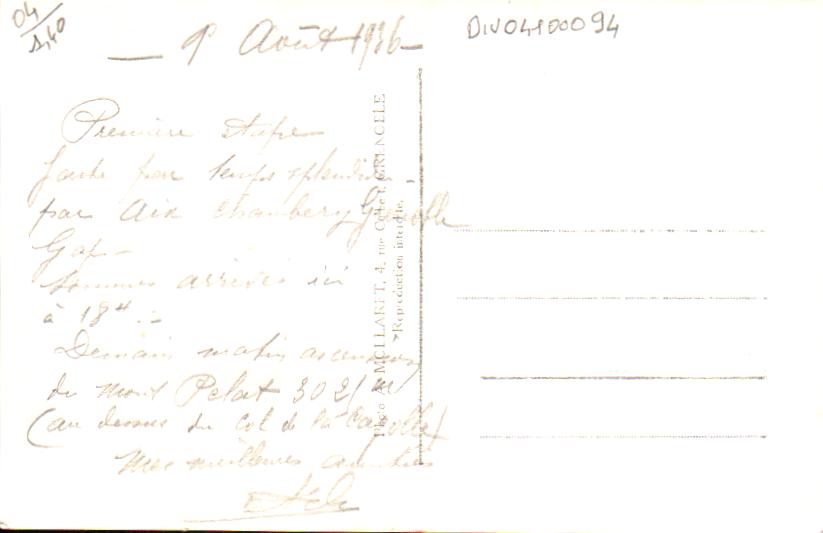 04
1,40
DIV04100094
— 1er Août 1936 —
Première étape
faite par temps splendide -
par Aix Chambery Grenoble
Gap -
sommes arrivés ici
à 18H. -
Demain matin ascension
du Mont Pelat 3021 m
(au dessus du Col de la Cayolle)
Mes meilleures amitiés
Photo A. MOLLARET, 4, rue Colbert, GRENOBLE
Reproduction interdite.